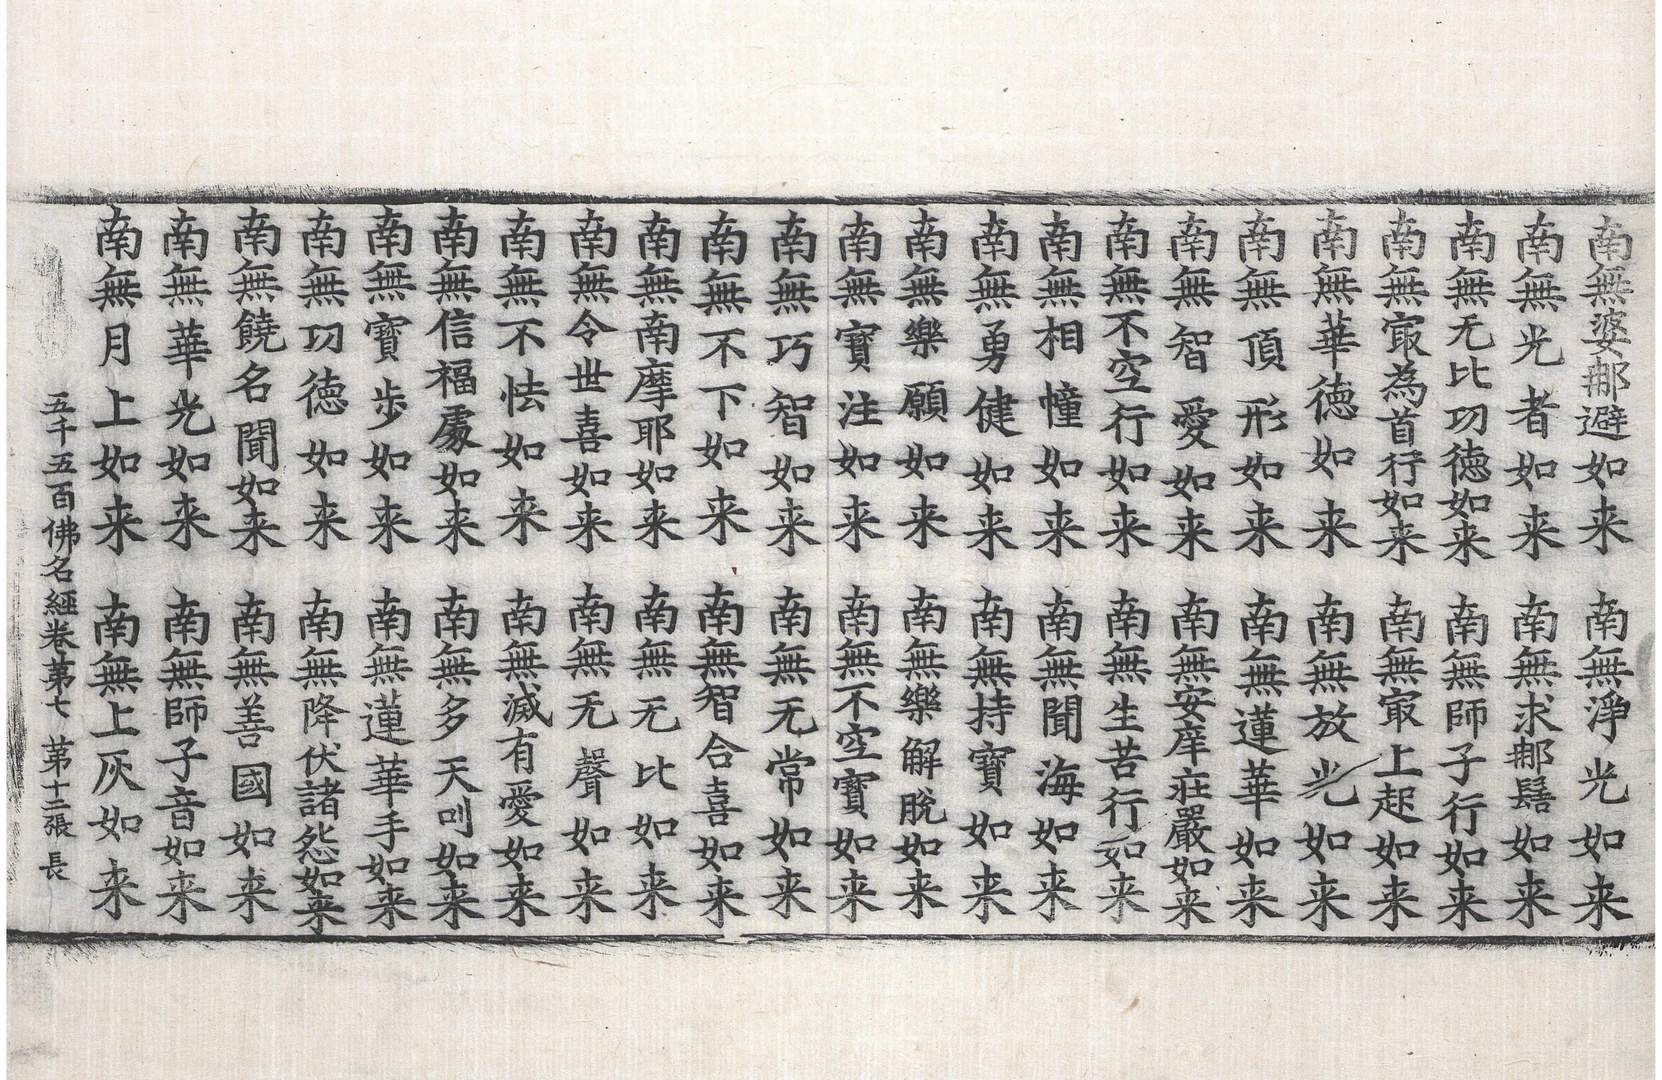 南無婆𨚗避如来　南無淨光如来
南無光者如来　南無求𨚗鬚如来
南無无比功德如来　南無師子行如来
南無冣為首行如来　南無冣上起如来
南無華德如来　南無放光如来
南無頂形如来　南無蓮華如来
南無智愛如来　南無安庠莊嚴如来
南無不空行如来　南無生苦行如来
南無相幢如来　南無聞海如来
南無勇健如来　南無持寶如来
南無樂願如来　南無樂解脫如来
南無寶注如来　南無不空寶如来
南無巧智如来　南無无常如来
南無不下如来　南無智合喜如来
南無南摩耶如来　南無无比如来
南無令世喜如来　南無无聲如来
南無不怯如来　南無滅有愛如来
南無信福處如来　南無多天叫如来
南無寶步如来　南無蓮華手如来
南無功德如来　南無降伏諸怨如来
南無饒名聞如来　南無善國如来
南無華光如来　南無師子音如来
南無月上如来　南無上灰如来
五千五百佛名經卷苐七　苐十二張　長